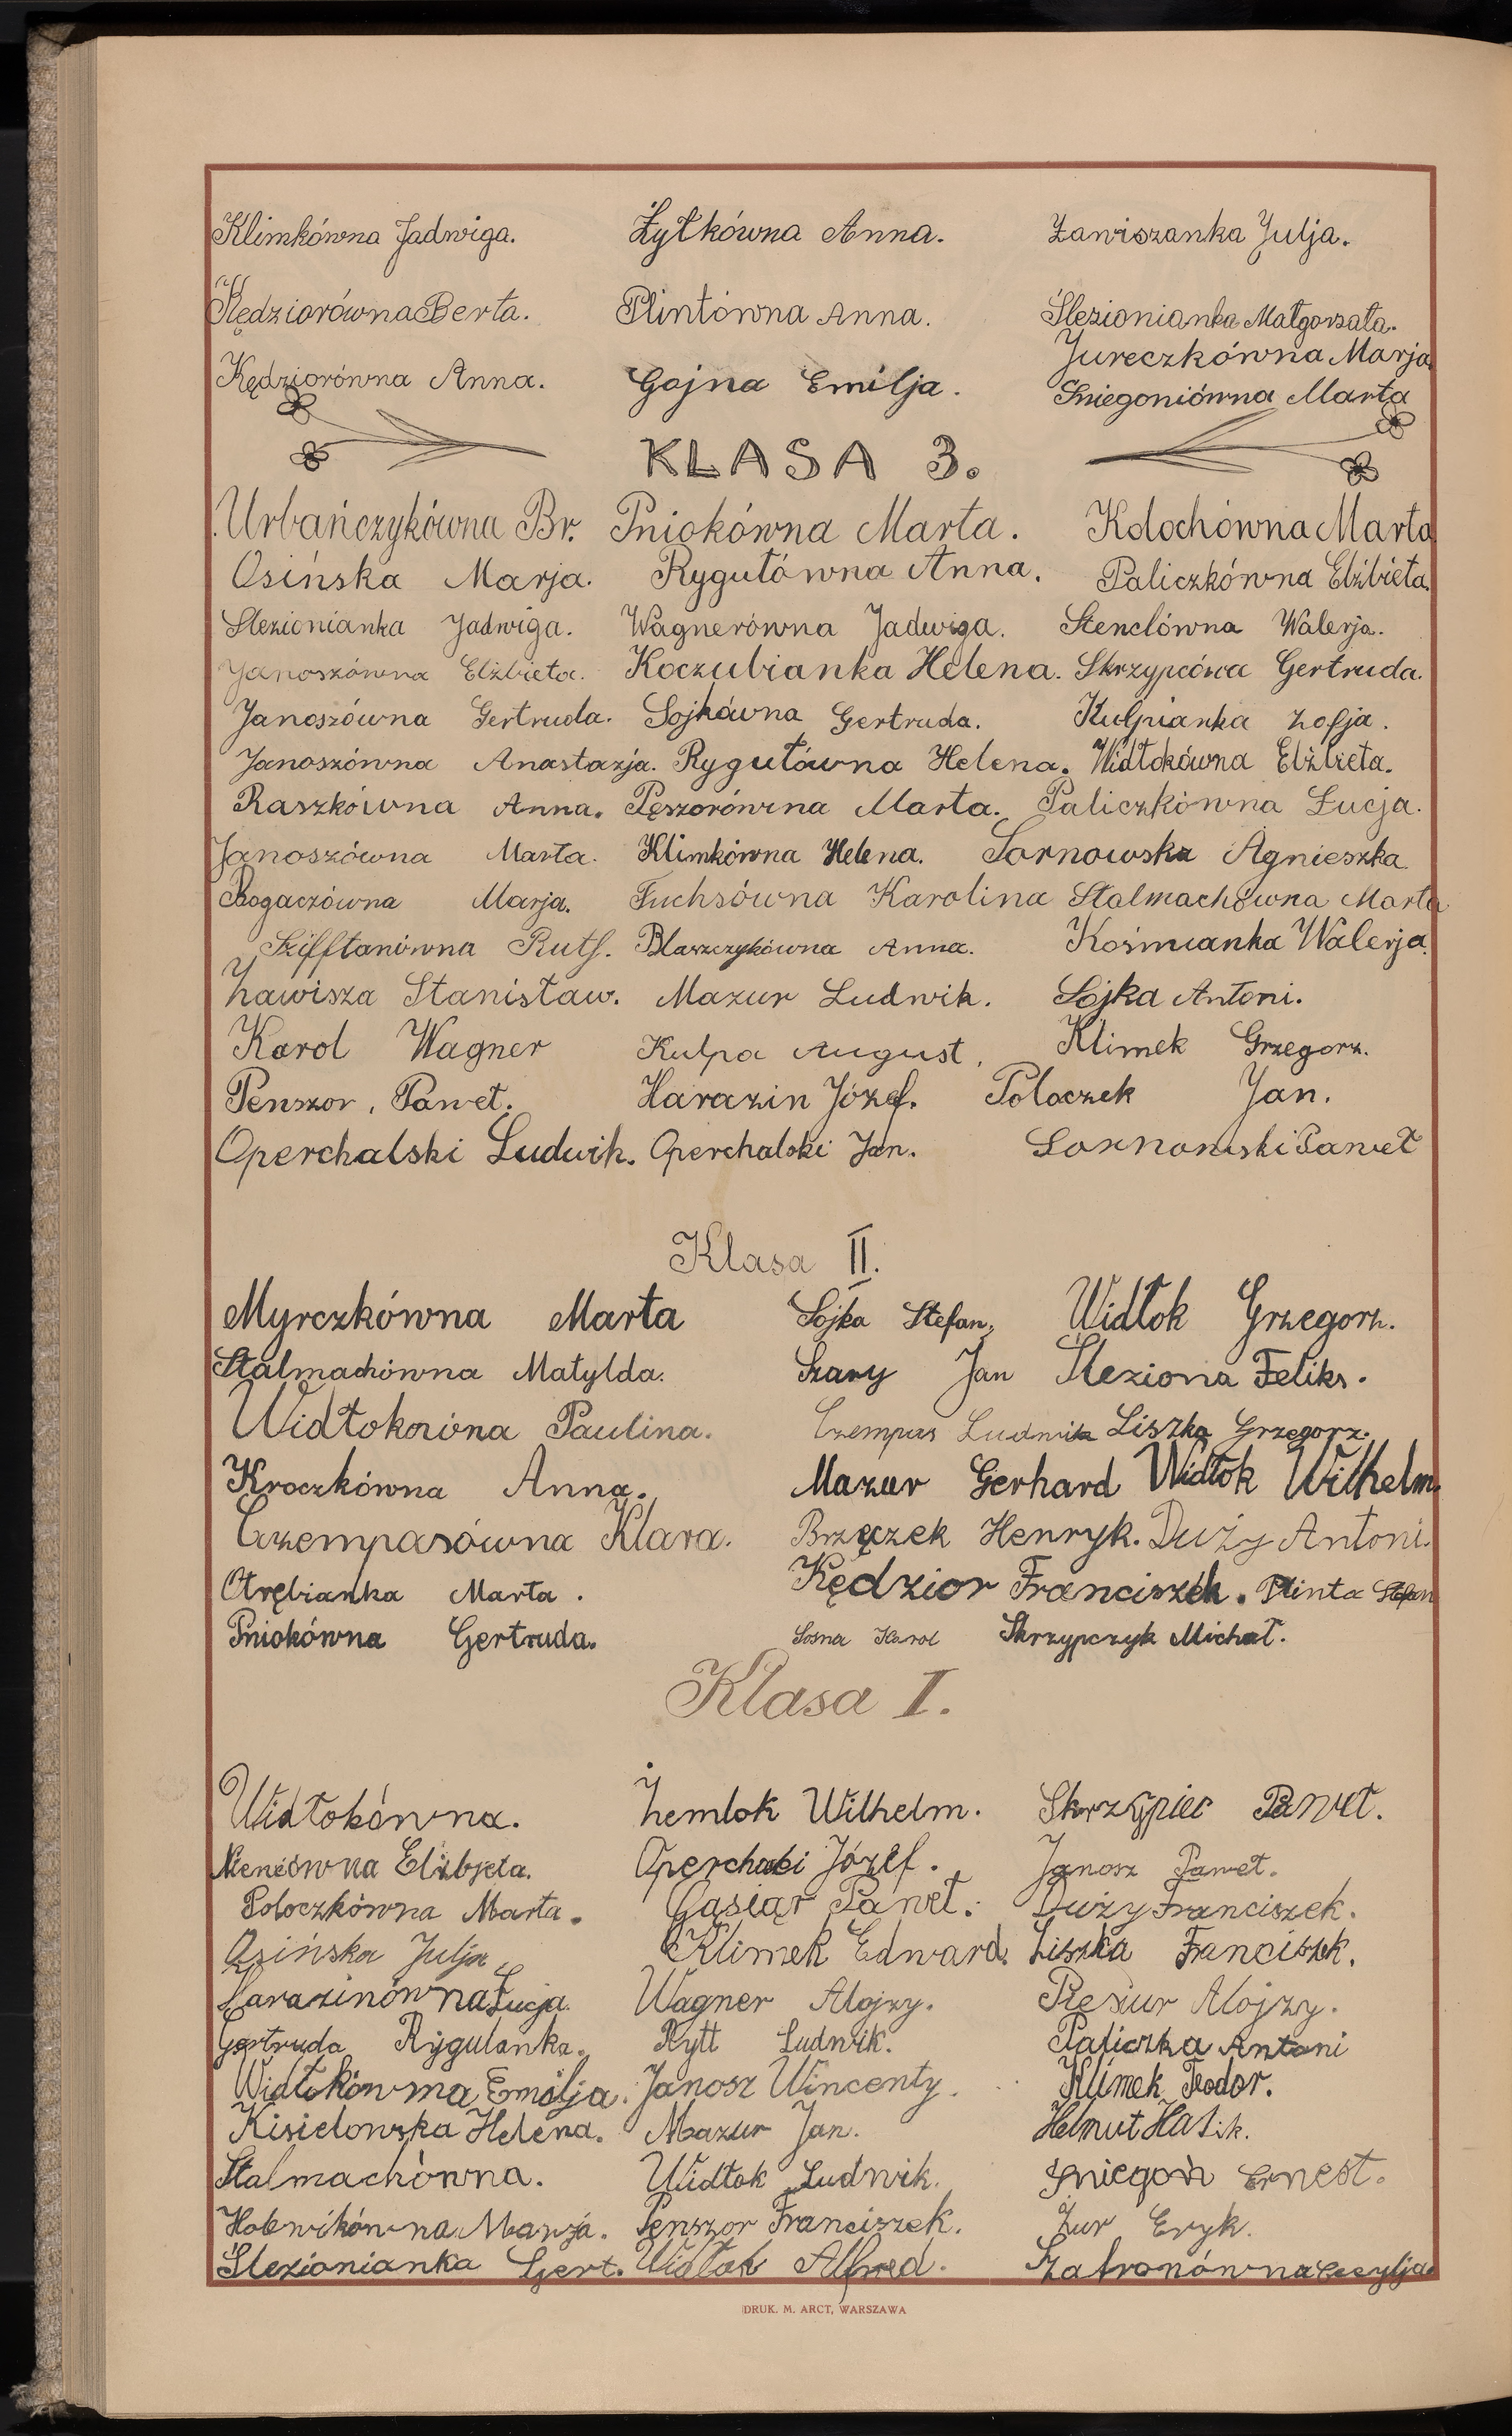 Klimkówna Jadwiga. Żytkówna Anna. Zawiszanka Julja.
Kędziorówna Berta. Plintówna Anna. Ślezionianka Małgorzata.
Jureczkówna Marja.
Kędziorówna Anna. Gojna Emilja. Śniegoniówna Marta
KLASA 3.
Urbańczykówna Br. Pniokówna Marta. Kołochówna Marta
Osińska Marja. Rygułówna Anna. Paliczkówna Elżbieta.
Slezionianka Jadwiga. Wagnerówna Jadwiga. Stenclówna Walerja.
Janoszówna Elżbieta. Koczubianka Helena. Skrzypcówa Gertruda.
Janoszówna Gertruda. Sojkówna Gertruda. Kulpianka Zofja.
Janoszówna Anastazja. Rygułówna Helena. Widłokówna Elżbieta.
Raszkówna Anna. Pęszorówna Marta. Paliczkówna Łucja.
Janoszówna Marta. Klimkówna Helena. Sornowska Agnieszka.
Bogaczówna Marja. Fuchsówna Karolina Stalmachówna Marta
Szifftanówna Ruth. Blaszczykówna Anna. Kośmianka Walerja.
Zawisza Stanisław. Mazur Ludwik. Sojka Antoni.
Karol Wagner Kulpa August. Klimek Grzegorz.
Penszor, Paweł. Harazin Józef. Poloczek Jan.
Operchalski Ludwik. Operchalski Jan. Sornowski Paweł
Klasa II.
Myrczkówna Marta Sojka Stefan. Widłok Grzegorz.
Stalmachówna Matylda. Szary Jan Śleziona Feliks.
Widłokówna Paulina. Czempas Ludwik Liszka Grzegorz.
Kroczkówna Anna. Mazur Gerhard Widłok Wilhelm.
Czempasówna Klara. Brzęczek Henryk. Duży Antoni.
Otrębianka Marta. Kędzior Franciszek. Plinta Stefan
Pniokówna Gertruda. Sosna Karol Skrzypczyk Michał.
Klasa I.
Widłokówna. Żemlok Wilhelm. Skrzypiec Paweł.
Elżbjeta. Józef. Janosz Paweł.
Poloczkówna Marta. Gąsiąr Paweł. Duży Franciszek.
Osińska Julja. Klimek Edward. Liszka Franciszek.
Harazinówna Łucja. Wagner Alojzy. Resiur Alojzy.
Gertruda Rygulanka. Rytt Ludwik. Paliczka Antoni
Widłokówna Emilja. Janosz Wincenty. Klimek Teodor.
Kisielowska Helena. Mazur Jan. Helmut
Stalmachówna. Widłok Ludwik. Śniegoń Ernest.
Marja. Penszor Franciszek. Żur Eryk.
Ślezionianka Gert. Widłok Alfred. Zatronówna Cecylja.
DRUK. M. ARCT, WARSZAWA